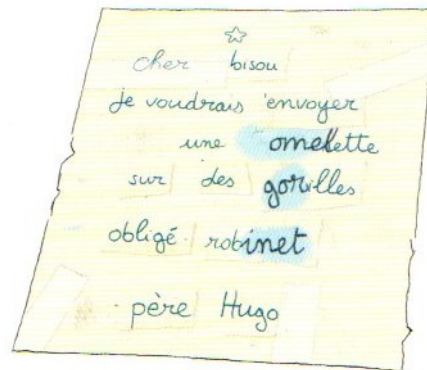 cher bisou
je voudrais envoyer
une omelette
sur des gorilles
obligé robinet
père Hugo